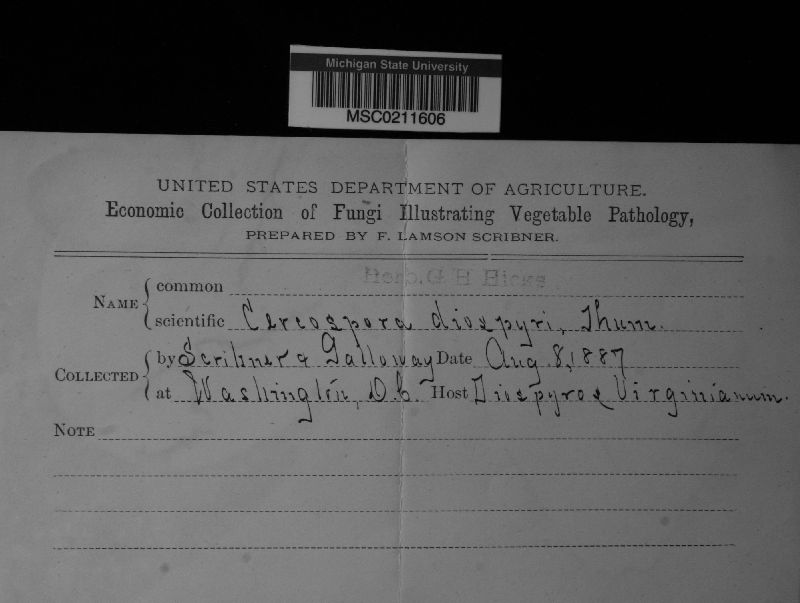 Michigan State University
MSC0211606
UNITED STATES DEPARTMENT OF AGRICULTURE.
Economic Collection of Fungi Illustrating Vegetable Pathology,
PREPARED BY F. LAMSON SCRIBNER.
Herb. G H Hicks
NAME common
scientific Cercospora diospyri, Thum.
COLLECTED by Scribner & Galloway Date Aug. 8, 1887
at Washington, D.C. Host Diospyros Virginianum.
NOTE